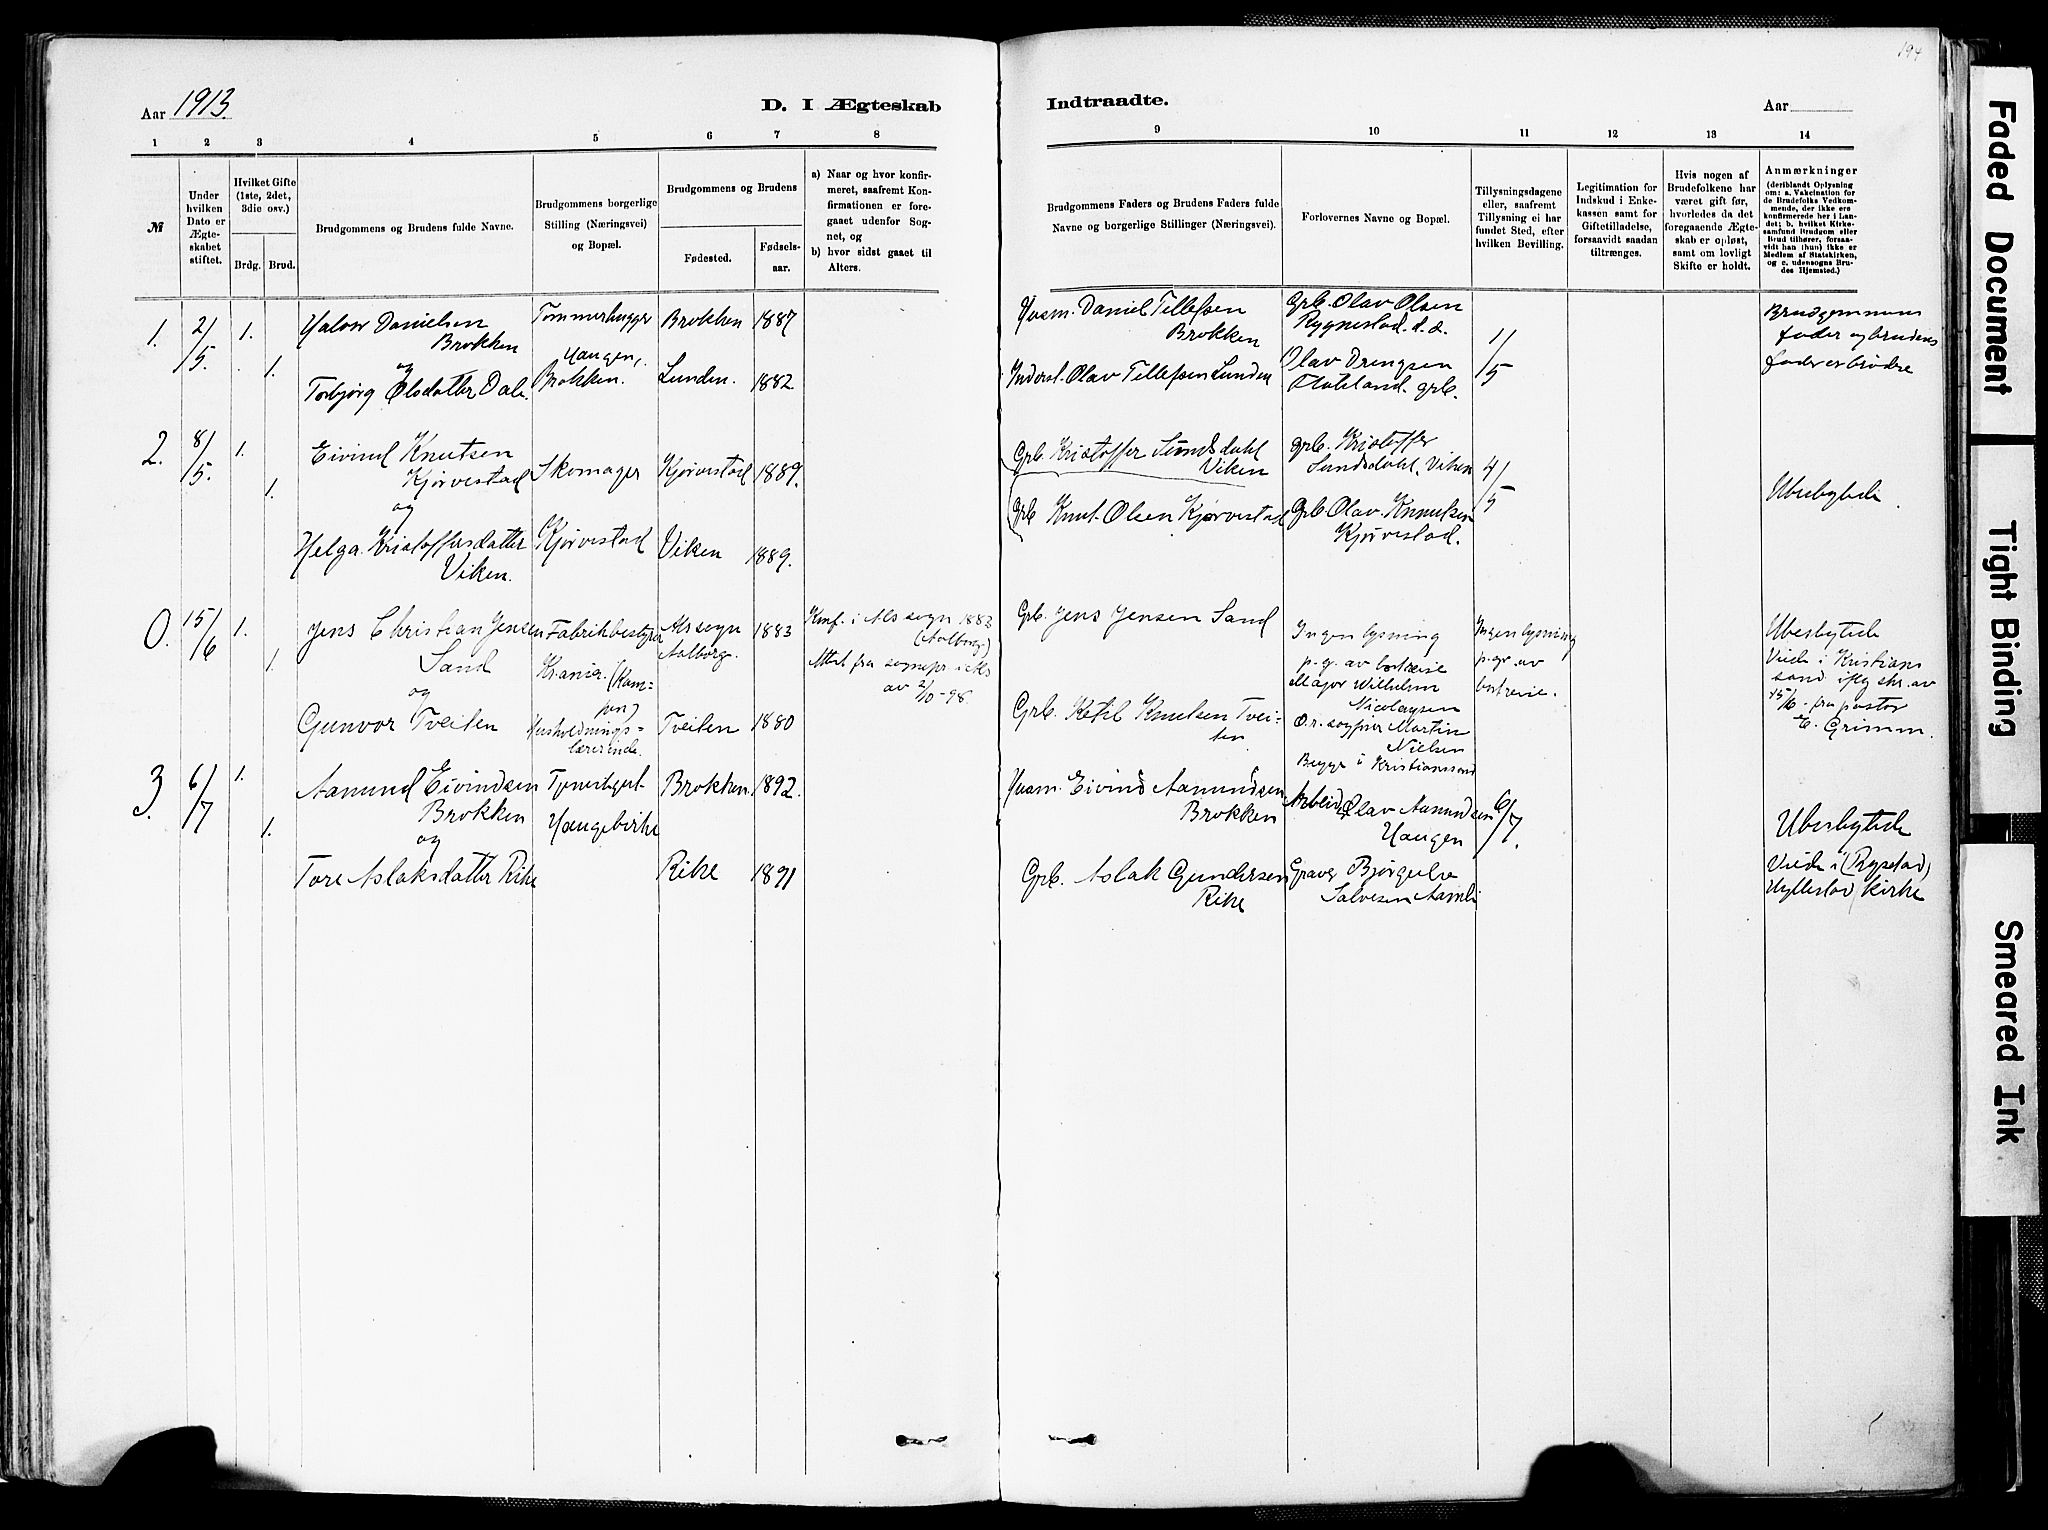 194
Aar 1913.
D. I Ægteskab
Indtraadte.
Aar
1 2 3 4 5 6 7 8 9 10 11 12 13 14
№
Under hvilken Dato er Ægteskabet stiftet.
Hvilket Gifte (1ste, 2det, 3die osv.)
Brdg. Brud.
Brudgommens og Brudens fulde Navne.
Brudgommens borgerlige
Stilling (Næringsvei)
og Bopæl.
Brudgommens og Brudens
Fødested.
Fødsels-
aar.
a) Naar og hvor konfir-
meret, saafremt Kon-
firmationen er fore-
gaaet udenfor Sog-
net, og
b) hvor sidst gaaet til
Alters.
Brudgommens Faders og Brudens Faders fulde
Navne og borgerlige Stillinger (Næringsvei).
Forlovernes Navne og Bopæl.
Tillysningsdagene
eller, saafremt
Tillysning ei har
fundet Sted, efter
hvilken Bevilling.
Legitimation for
Indskud i Enke-
kassen samt for
Giftetilladelse,
forsaavidt saadan
tiltrænges.
Hvis nogen af
Brudefolkene har
været gift før,
hvorledes da det
foregaaende Ægte-
skab er opløst,
samt om lovligt
Skifte er holdt.
Anmærkninger
(deriblandt Oplysning
om: a. Vakcination for
de Brudefolks Vedkom-
mende, der ikke ere
konfirmerede her i Lan-
det; b. hvilket Kirke-
samfund Brudgom eller
Brud tilhører, forsaa-
vidt han (hun) ikke er
Medlem af Statskirken,
og c. udensogns Bru-
des Hjemsted.)
1. 2/5. 1. 1.
Halvor Danielsen
Brokken
og
Torbjørg Olsdatter Dale.
Tømmerhugger
Haugen,
Brokken.
Brokken 1887
Lunden. 1882
Husm. Daniel Tellefsen
Brokken
Inderst. Olav Tellefsen Lunden
Grb. Olav Olsen
Rygnestad. d.æ.
Olav Drengsen
grb.
1/5
Brudgommens
fader og brudens
fader er brødre
2. 8/5. 1. 1.
Eivind Knutsen
Kjørvestad
og
Helga Kristoffersdatter
Viken.
Skomager
Kjørvestad
Kjørvestad 1889.
Viken 1889.
Grb. Kristoffer Sundsdahl
Viken
Grb Knut Olsen Kjørvestad
grb. Kristoffer
Sundsdahl, Viken
Grb Olav Knutsen
Kjørvestad.
4/5
Ubeslegtede
0. 15/6 1. 1.
Jens Christian Jensen
Sand
og
Gunvor Tveiten
Fabrikbestyrer
Kr.ania. (Kam-
pen)
Husholdnings-
lærerinde.
Als sogn
Aalborg. 1883
Tveiten 1880
Konf. i Als sogn 1883
(Aalborg)
Attest fra sognepr. i Als
av 2/10-98.
Grb. Jens Jensen Sand
Grb. Ketil Knutsen Tvei-
ten
Ingen lysning
p. g. av bortreise
Major Wilhelm
Nicolaysen
o.r. sagfører Martin
Nielsen
Begge i Kristianssand
Ingen lysning
p. gr. av
bortreise.
Ubeslegtede
Viede i Kristians
sand iflg skr. av
15/6- fra pastor
E. Grimm.
3. 6/7 1. 1.
Aamund Eivindsen
Brokken
og
Tore Aslaksdatter Rike
Tjenestegut
Haugebirke
Brokken 1892.
Rike 1891
Husm. Eivind Aamundsen
Brokken
Grb. Aslak Gundersen
Rike
Arbeid. Olav Aamundsen
Haugen
Graver Bjørgulv
Salvesen Aamli
6/7.
Ubeslegtede
Viede i (Rysstad)
Hyllestad kirke
Faded Document
Tight Binding
Smeared Ink